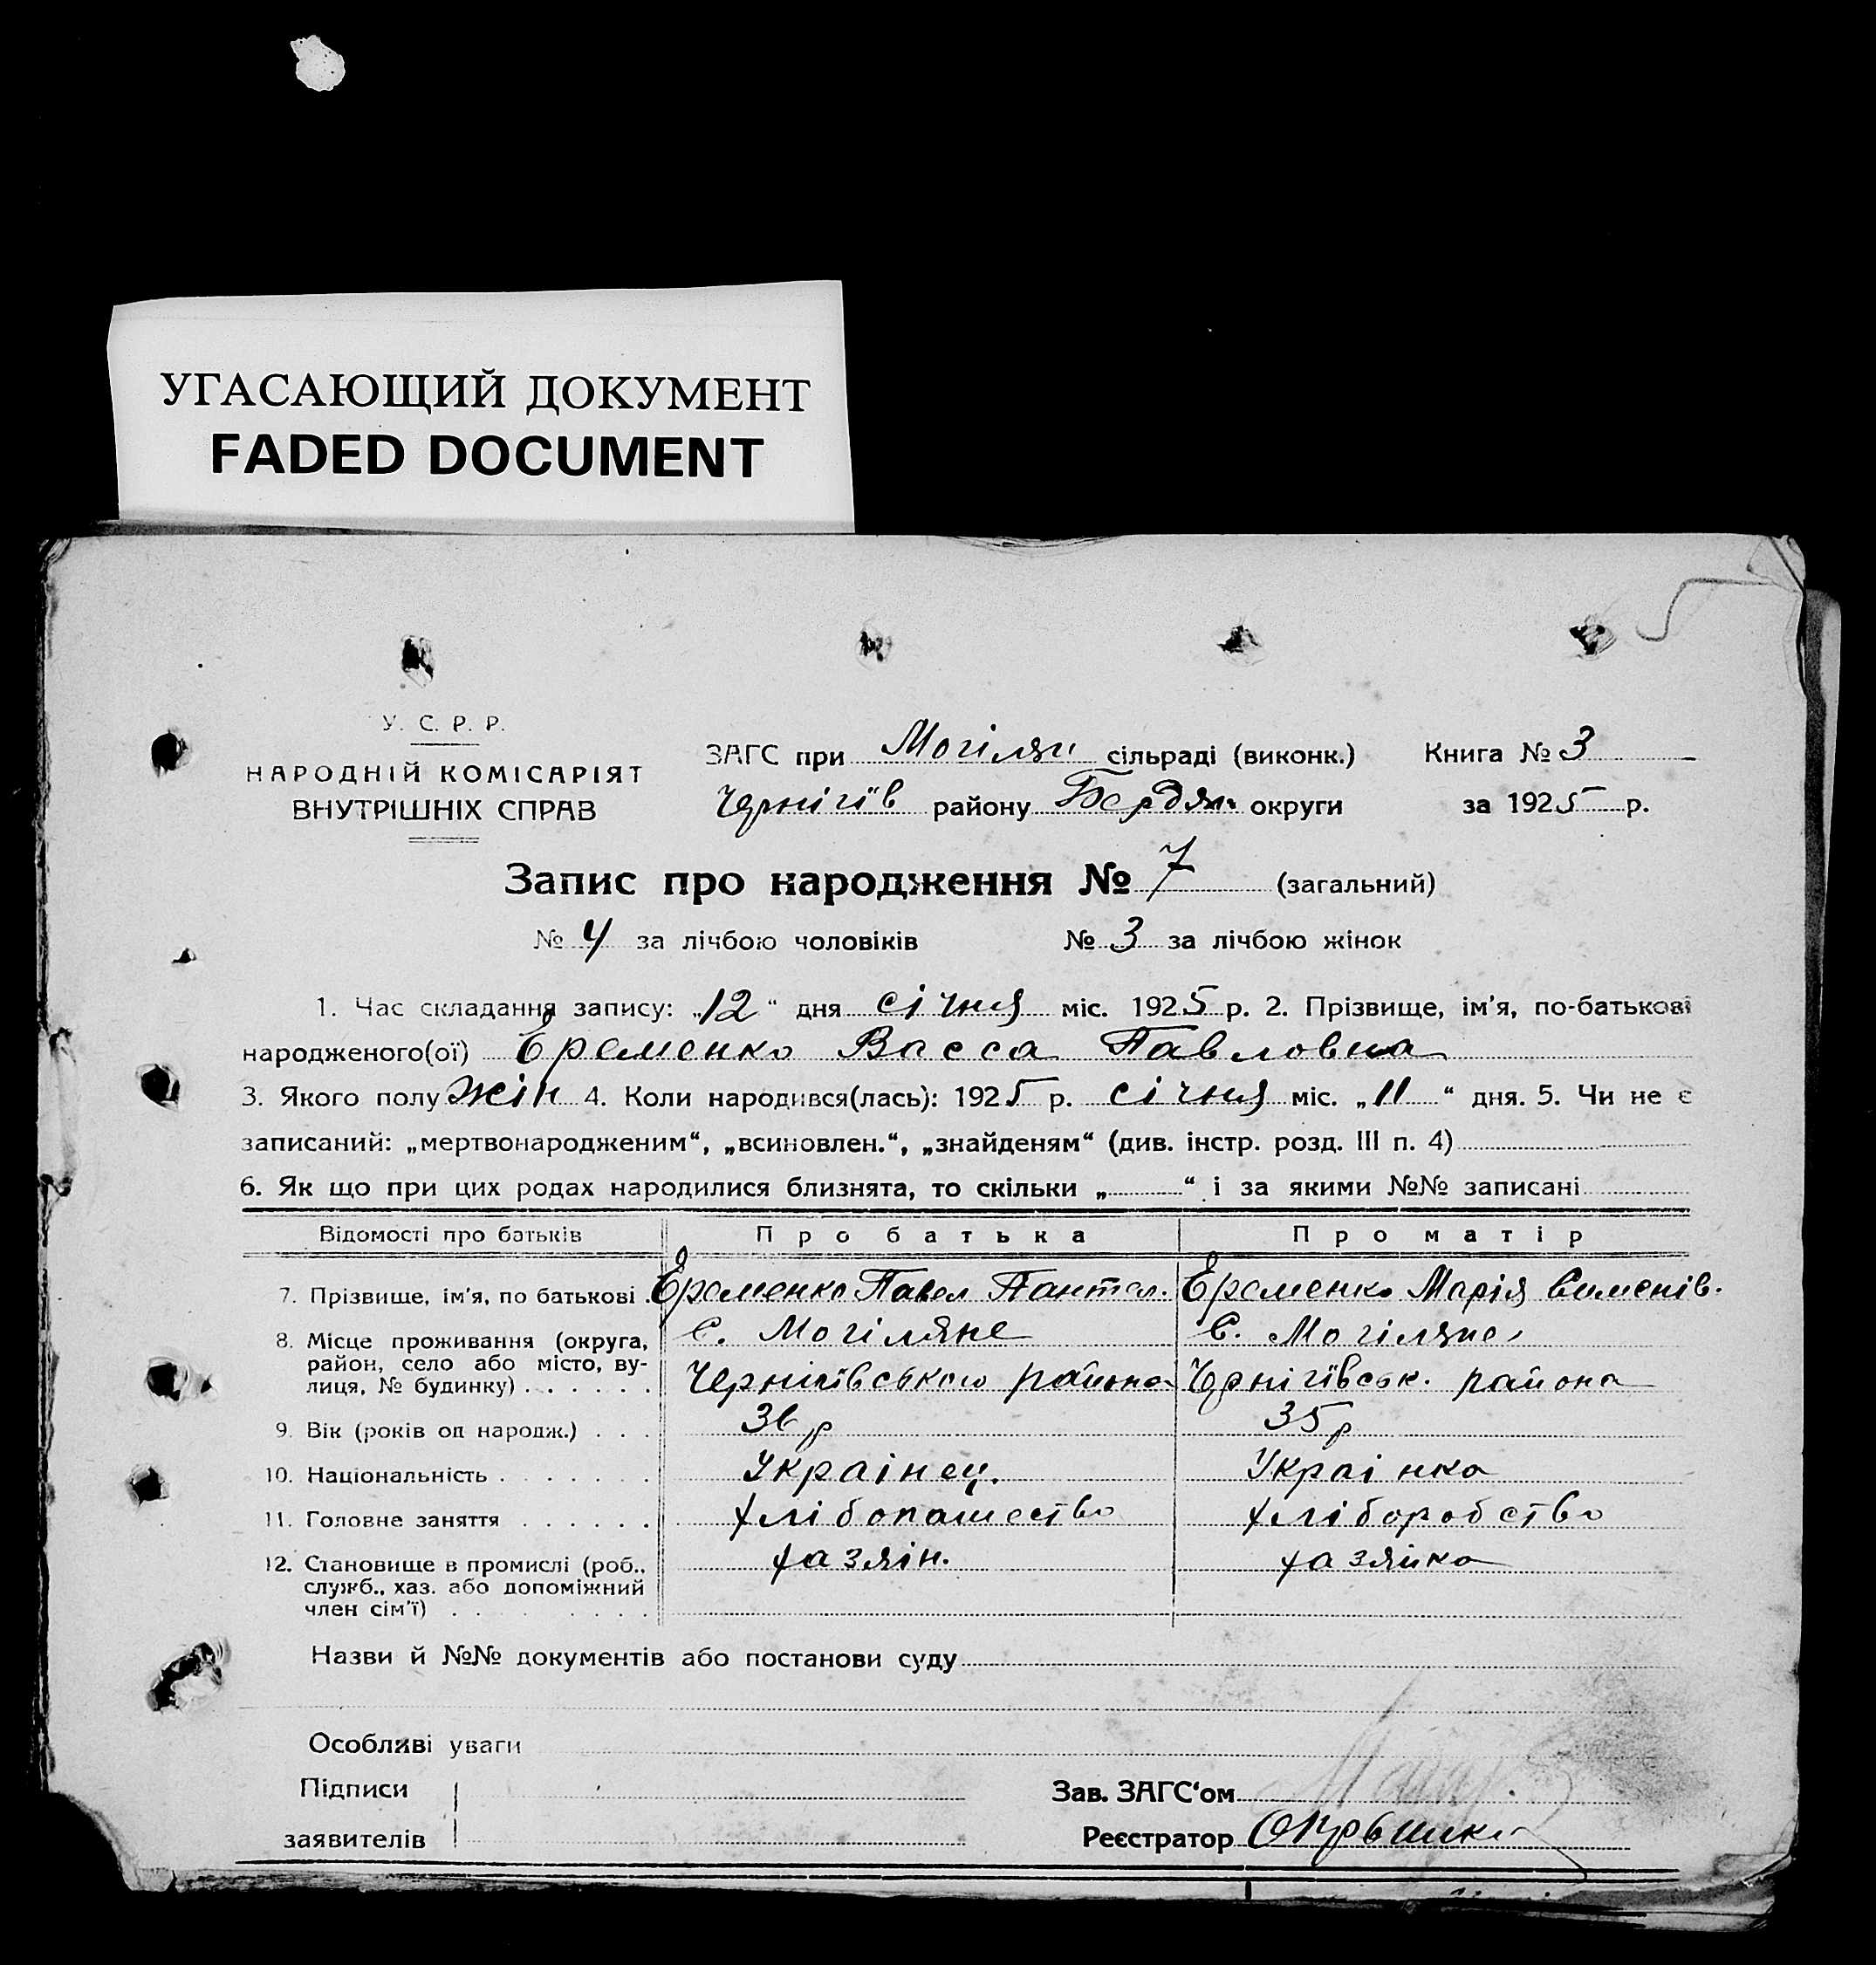 УГАСАЮЩИЙ ДОКУМЕНТ
FADED DOCUMENT
У. С. Р. Р.
НАРОДНІЙ КОМІСАРІЯТ
ВНУТРІШНІХ СПРАВ
ЗАГС при Могілян сільраді (виконк.) Книга № 3
Чернігів району Бердян. округи за 1925 р.
Запис про народження № 7 (загальний)
№ 4 за лічбою чоловіків № 3 за лічбою жінок
1. Час складання запису: „12“ дня січня міс. 1925 р. 2. Прізвище, ім'я, по-батькові
народженого(ої) Ёременко Васса Павловна
3. Якого полу жін 4. Коли народився(лась): 1925 р. січня міс. „11“ дня. 5. Чи не є
записаний: „мертвонародженим“, „всиновлен.“, „знайденям“ (див. інстр. розд. III п. 4)
6. Як що при цих родах народилися близнята, то скільки „ “ і за якими №№ записані
Відомості про батьків Про батька Про матір
7. Прізвище, ім'я, по батькові . Ёременко Павел Пантел. Ёременко Марія Сименів.
8. Місце проживання (округа, район, село або місто, вулиця, № будинку) . . . . . .
С. Могіляне С. Могіляне
Чернігівського района Чернігівськ. района
9. Вік (років од народж.) . . . 36 р 35 р
10. Національність . . . . . . . Украінец. Украінка
11. Головне заняття . . . . . . хлібопашество хліборобство
12. Становище в промислі (роб., служб., хаз. або допоміжний член сім'ї) . . . . . . . хазяін. хазяйка
Назви й №№ документів або постанови суду
Особливі уваги
Підписи
заявителів
Зав. ЗАГС‘ом
Реєстратор